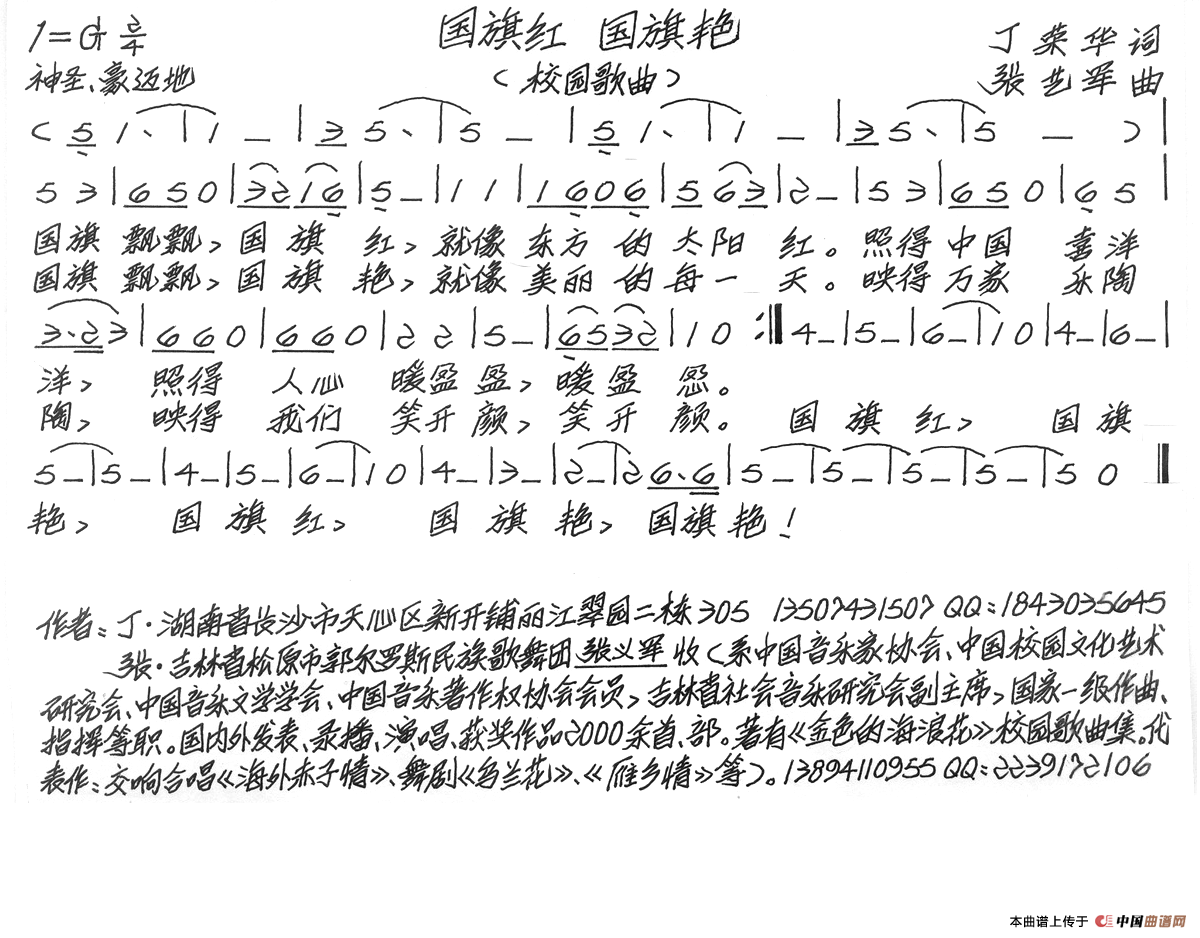 国旗红 国旗艳
1=G 2/4
丁荣华 词
神圣、豪迈地
(校园歌曲)
张艺军 曲
( 5 1、| 1 — | 3 5、| 5 — | 5 1、| 1 — | 3 5、| 5 — ) |
5 3 | 6 5 0 | 3 2 1 6 | 5 — | 1 1 | 1 6 0 6 | 5 6 3 | 2 — | 5 3 | 6 5 0 | 6 5 |
国旗 飘飘，国 旗 红，就像 东方 的 太阳 红。照得 中国 喜洋
国旗 飘飘，国 旗 艳，就像 美丽 的 每一 天。映得 万家 乐陶
3·2 3 | 6 6 0 | 6 6 0 | 2 2 | 5 — | 6 5 3 2 | 1 0 :‖ 4 — | 5 — | 6 — | 1 0 | 4 — | 6 — |
洋， 照得 人心 暖盈 盈，暖 盈 盈。
陶， 映得 我们 笑开 颜，笑 开 颜。 国 旗 红， 国 旗
5 — | 5 — | 4 — | 5 — | 6 — | 1 0 | 4 — | 3 — | 2 — | 2 6·6 | 5 — | 5 — | 5 — | 5 — | 5 0 ‖
艳， 国 旗 红， 国 旗 艳，国旗 艳！
作者：丁·湖南省长沙市天心区新开铺丽江翠园二栋305 13507431507 QQ：1843035645
张·吉林省松原市郭尔罗斯民族歌舞团张义军收(系中国音乐家协会、中国校园文化艺术
研究会、中国音乐文学学会、中国音乐著作权协会会员，吉林省社会音乐研究会副主席，国家一级作曲、
指挥等职。国内外发表、录播、演唱、获奖作品2000余首、部。著有《金色的海浪花》校园歌曲集。代
表作：交响合唱《海外赤子情》、舞剧《乌兰花》、《雁乡情》等)。13894110955 QQ：2239172106
本曲谱上传于 中国曲谱网